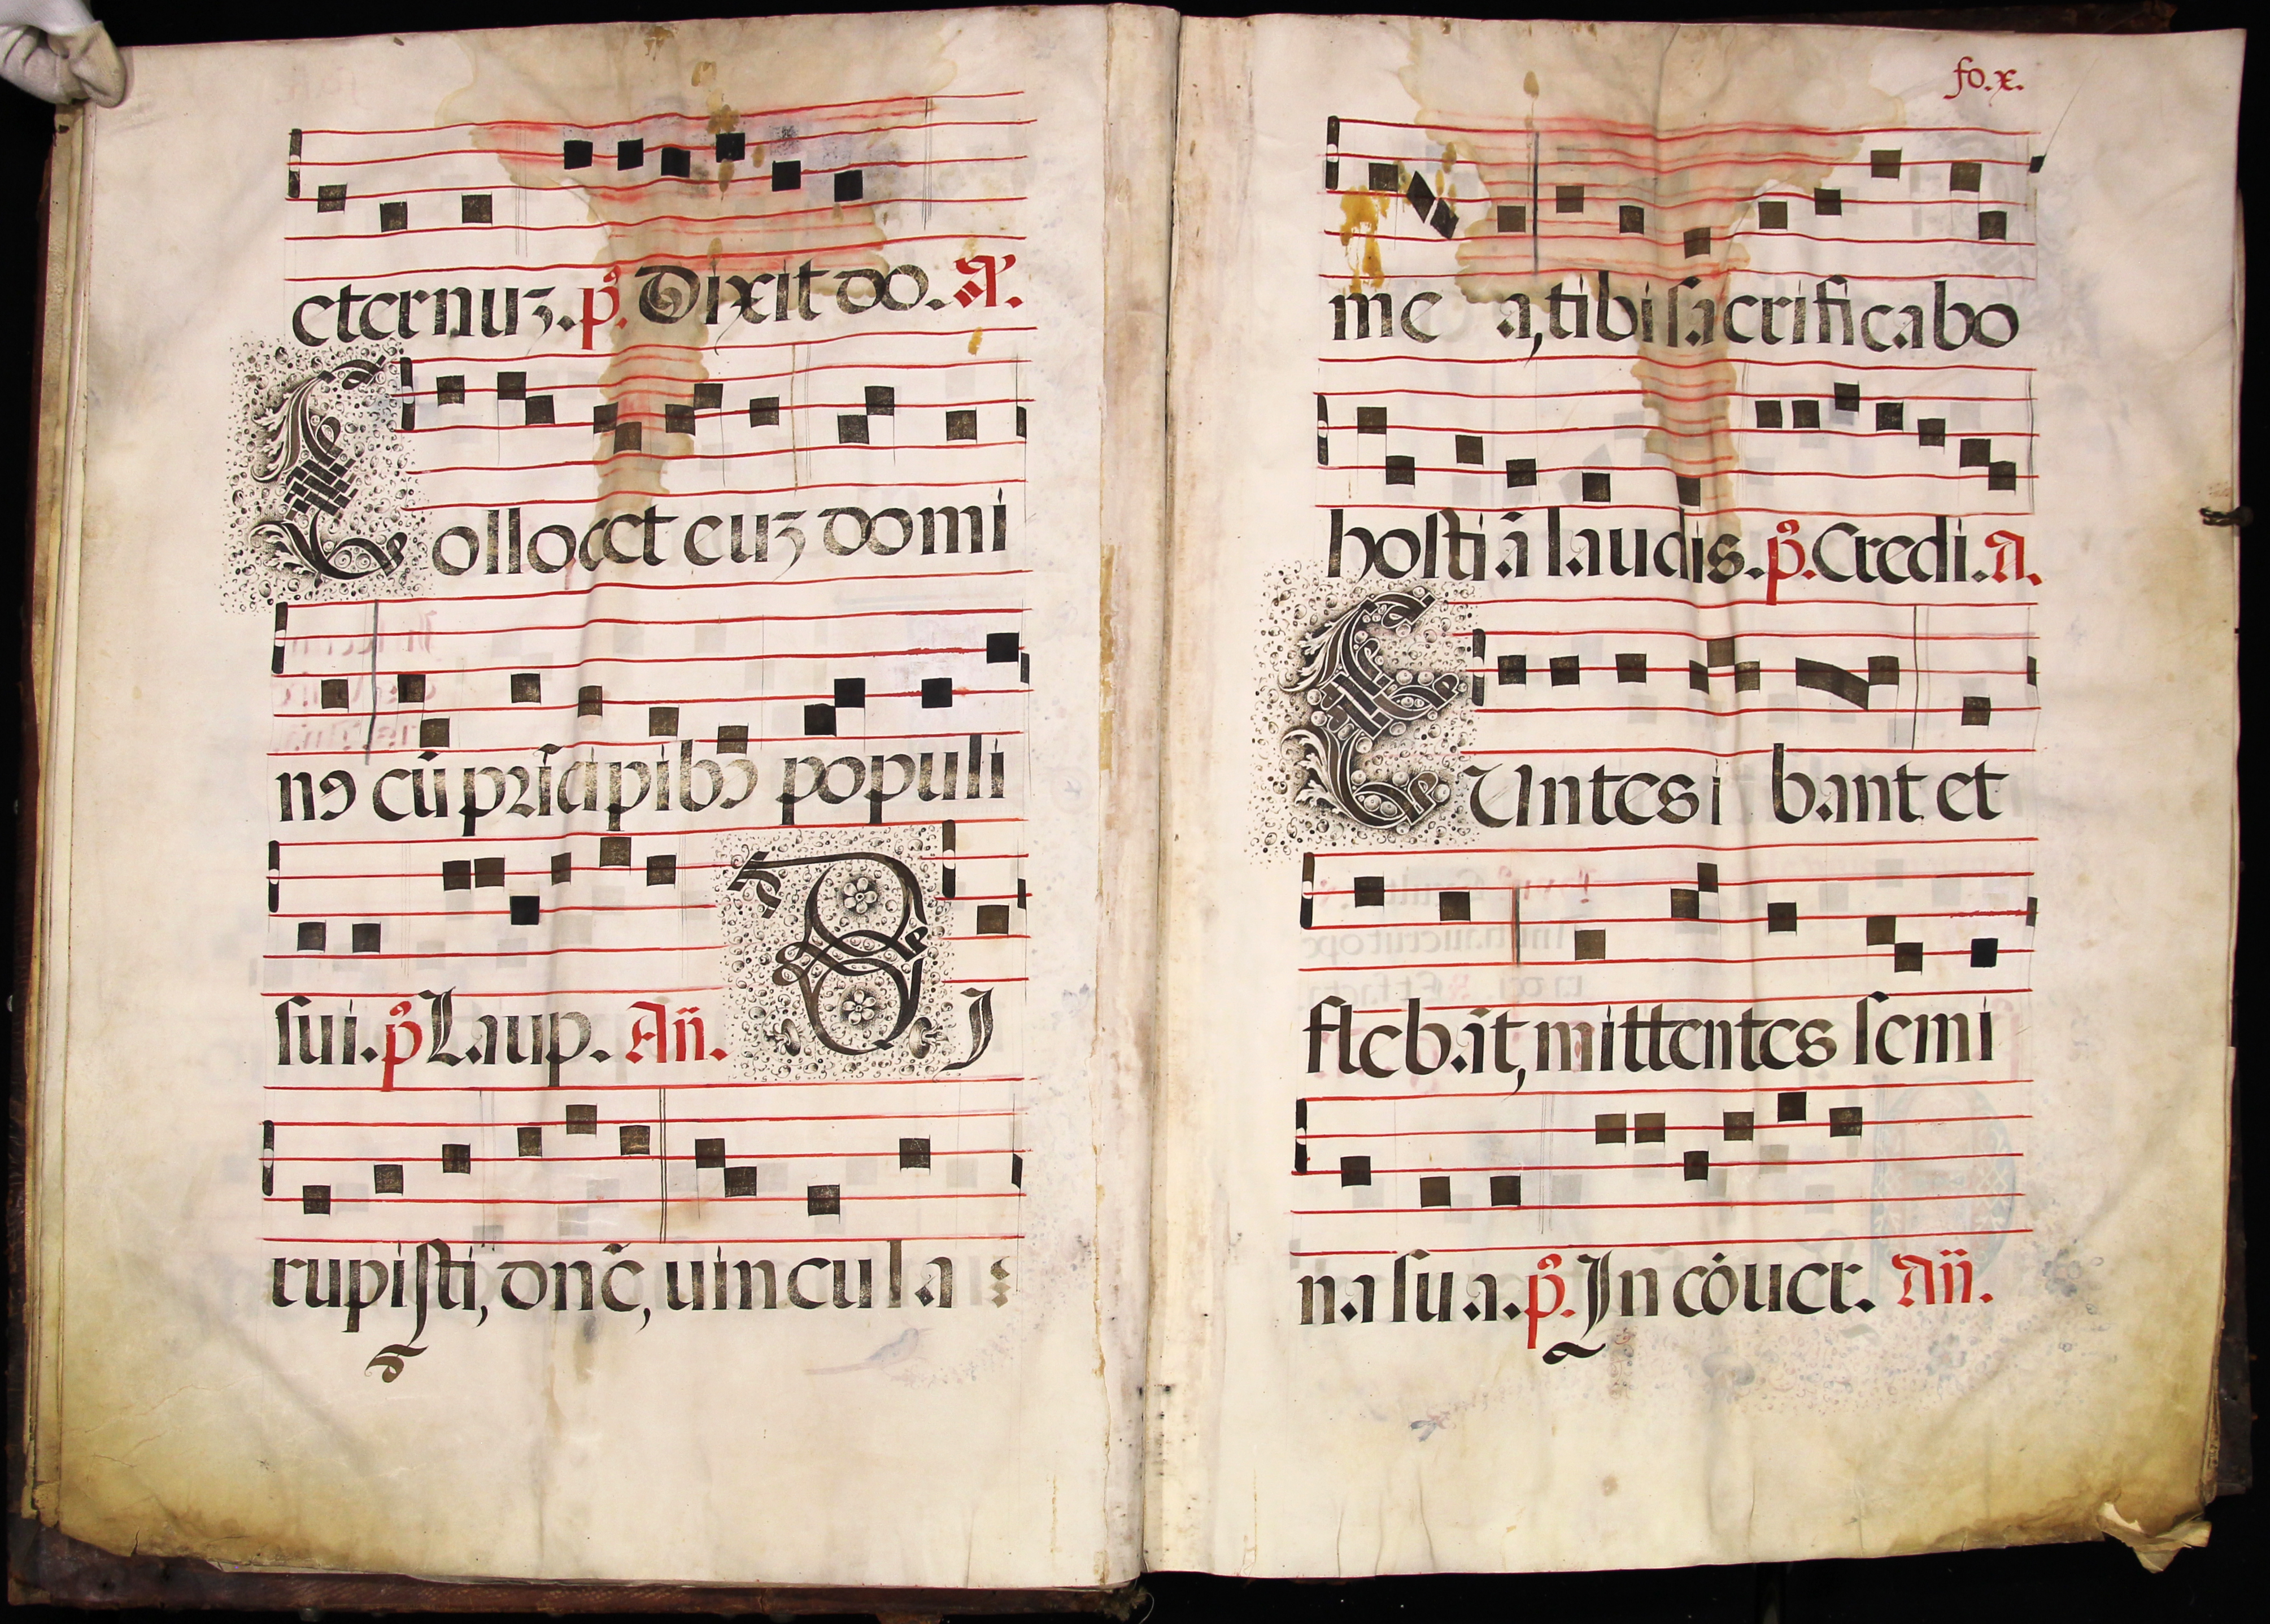 eternuʒ. p̃. Dixit do. A.
Collocet euʒ domi
nꝰ cũ prĩcipibꝰ populi
sui. p̃ Laup. Añ. Di
rupisti, dnẽ, uincula :
fo. x.
me a, tibi sacrificabo
hosti ã laudis. p̃. Credi. A.
EUntes i bant et
flebãt, mittentes semi
na sua. p̃. In cõuer. Añ.